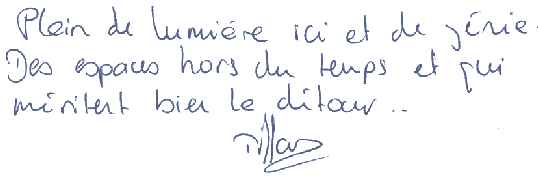 Plein de lumière ici et de génie.
Des espaces hors du temps et qui
méritent bien le détour..